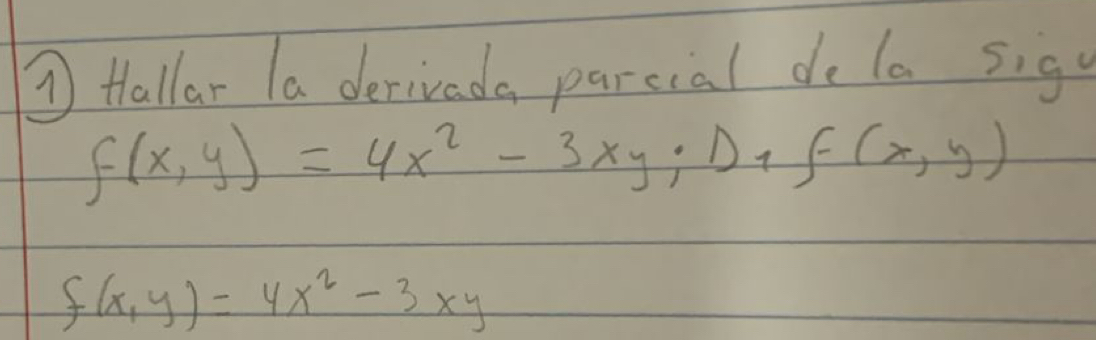 1 Hallar la derivada parcial de la sigu
f(x, y) = 4x² - 3xy; D₁ f(x, y)
f(x, y) = 4x² - 3xy